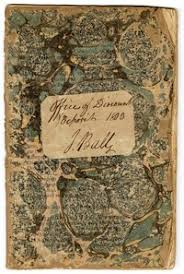 Office of Discount
& Deposit 1803
J. Ball